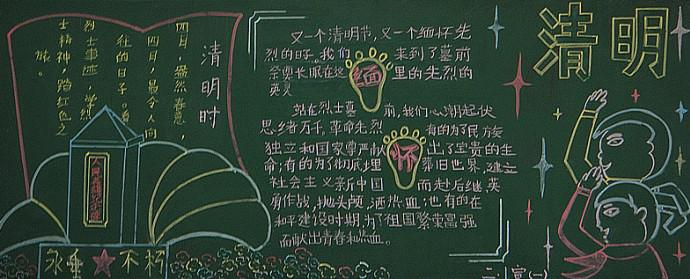 清明
清明时
四月，盎然春意，
四月，最令人向
往的日子。看
烈士事迹，学烈
士精神，踏红色之
旅。
永垂不朽
又一个清明节，又一个缅怀先
烈的日子。我们来到了墓前
祭奠长眠在这里的先烈的
英灵
缅
站在烈士墓前，我们心潮起伏
思绪万千，革命先烈有的为了民族
独立和国家尊严献出了宝贵的生
命；有的为了彻底埋葬旧世界，建立
社会主义新中国而赴后继英
勇作战，抛头颅，洒热血；也有的在
和平建设时期，为了祖国繁荣富强
而献出青春和热血。
怀
二、宣（一）